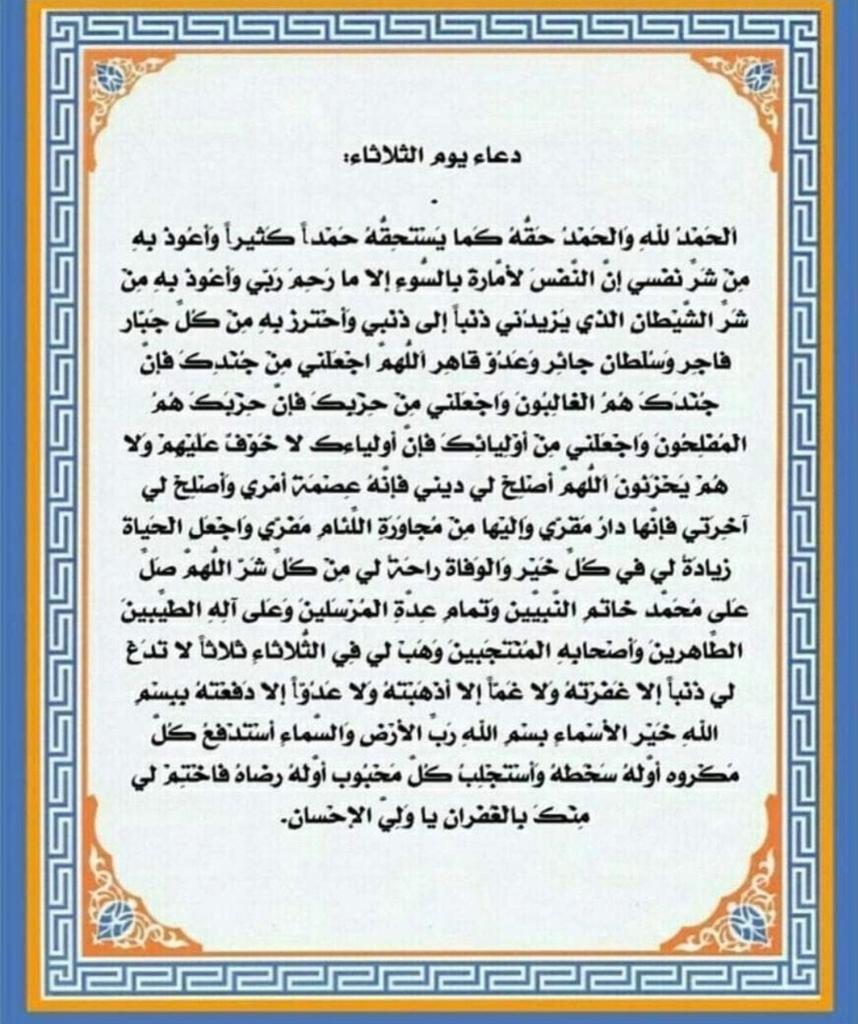 دعاء يوم الثلاثاء:
.
اَلحَمْدُ للهِ وَالْحَمْدُ حَقُّهُ كَما يَسْتَحِقُّهُ حَمْداً كَثيراً وَأَعُوذ بهِ
مِنْ شَرِّ نَفْسي إنَّ النَّفْسَ لأمّارة بالسُّوءِ إلا ما رَحِمَ رَبّي وَأَعُوذ بهِ مِنْ
شَرِّ الشَّيْطان الذي يَزيدُني ذنْباً إلى ذنْبي وَأحْترزُ بهِ مِنْ كُلِّ جَبّار
فاجر وَسُلطان جائِر وَعَدُوّ قاهِر اَللّهُمَّ اجْعَلني مِنْ جُنْدِكَ فإنَّ
جُنْدَكَ هُمُ الغالِبُونَ وَاجْعَلني مِنْ حِزْبكَ فإنَّ حِزْبَكَ هُمُ
المُفْلِحُونَ وَاجْعَلني مِنْ أوْلِيائِكَ فإنَّ أولياءك لا خَوْفٌ عَليْهِمْ وَلا
هُمْ يَحْزَنُونَ اَللّهُمَّ أصْلِحْ لي ديني فإنَّهُ عِصْمَة أمْري وَأصْلِحْ لي
آخِرَتي فإنَّها دارُ مَقرّي وَإليْها مِنْ مُجاوَرَةِ اللِّئامِ مَفرّي وَاجْعَلِ الحَياة
زيادَةً لي في كُلِّ خَيْر وَالوَفاة راحَةً لي مِنْ كُلِّ شَرّ اَللّهُمَّ صَلِّ
عَلى مُحَمَّد خاتمِ النَّبيّينَ وَتمامِ عِدَّةِ المُرْسَلينَ وَعَلى آلِهِ الطيِّبينَ
الطّاهرينَ وَأصْحابهِ المُنْتجَبينَ وَهَبْ لي فِي الثُّلاثاءِ ثلاثاً لا تدَعْ
لي ذنْباً إلا غَفرْتهُ وَلا غَمّاً إلا أذهَبْتهُ وَلا عَدُوّاً إلا دَفعْتهُ ببسْمِ
اللهِ خَيْرِ الأسْماءِ بسْمِ اللهِ رَبِّ الأرْضِ وَالسَّماءِ أسْتدْفِعُ كُلَّ
مَكْروه أوَّلهُ سَخَطهُ وَأسْتجْلِبُ كُلَّ مَحْبُوب أوَّلهُ رضاهُ فاخْتِمْ لي
مِنْكَ بالغُفْران يا وَلِيَّ الإحْسان.